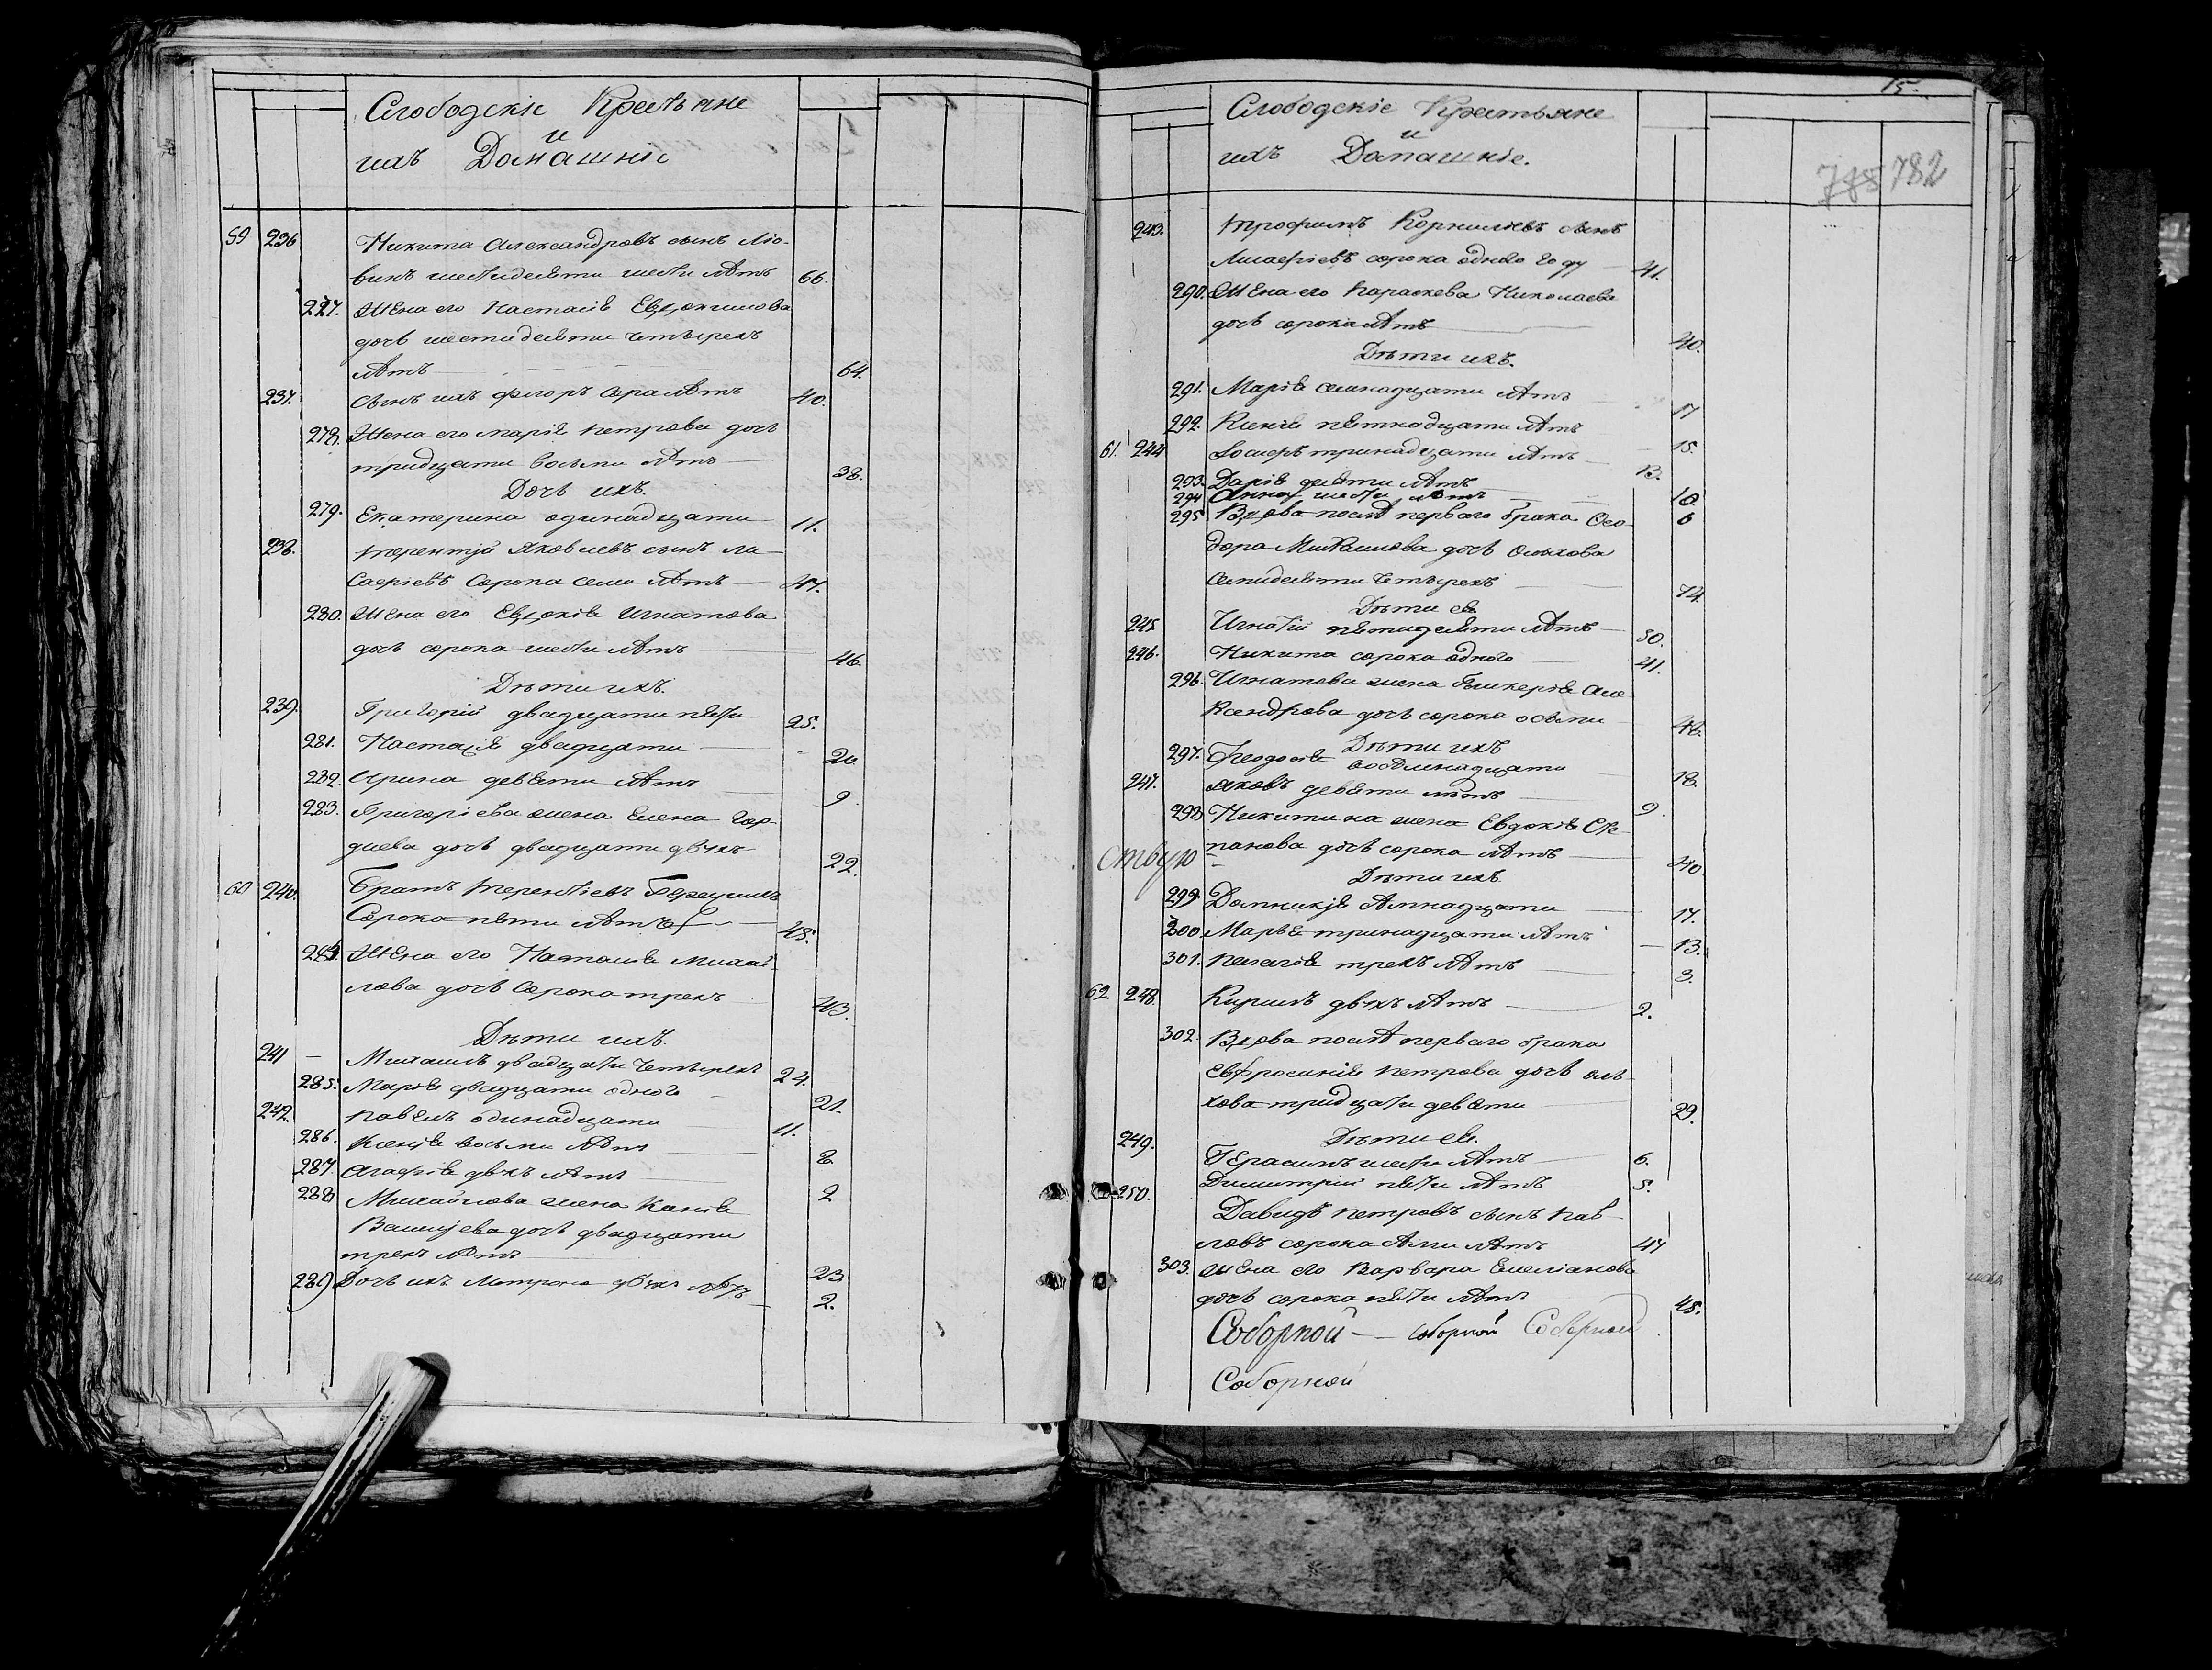 Слободскіе Крестьяне
и
ихъ Домашніе
59 236 Никита Александровъ сынъ Лю-
винъ шестидесяти шести лѣтъ 66.
277. Жена его Настасія Евдокимова
дочь шестидесяти четырехъ
лѣтъ 64.
237. Сынъ ихъ Флоръ сора лѣтъ 40.
278. Жена его Марія Петрова дочь
тридцати восьми лѣтъ 38.
Дочь ихъ.
279. Екатерина одинадцати 11.
238. Терентій Яковлевъ сынъ Ли-
саеріевъ сорока семи лѣтъ 47.
280. Жена его Евдокія Игнатова
дочь сорока шести лѣтъ 46.
Дѣти ихъ.
239. Григорій двадцати пяти 25.
281. Настасія двадцати 20
282. Ирина девяти лѣтъ 9.
283. Григоріева жена Елена Гор-
диева дочь двадцати двухъ 22.
60 240. Братъ Терентіевъ
Сорока пяти лѣтъ 45.
284. Жена его Настасія Михай-
лова дочь сорока трехъ 43.
Дѣти ихъ.
241 Михаилъ двадцати четырехъ 24.
285. Марія двадцати одного 21.
242. Павелъ одинадцати 11.
286. Ксенія восьми лѣтъ 8.
287. Агафія двухъ лѣтъ 2
288 Михайлова жена
дочь двадцати
трехъ лѣтъ 23
289 Дочь ихъ Матрона двухъ лѣтъ 2.
15.
Слободскіе Крестьяне
и
ихъ Домашніе.
785 782
243. Трофимъ Корниліевъ сынъ
Лисаеріевъ сорока одного году 41.
290. Жена его Параскева Николаева
дочь сорока лѣтъ 40.
Дѣти ихъ.
291. Марія семнадцати лѣтъ 17
292. Ксенія пятнадцати лѣтъ 15.
61. 244 Іосифъ тринадцати лѣтъ 13.
293. Дарія десяти лѣтъ 10
294 Анна шести лѣтъ 6
295 Вдова послѣ перваго брака Ѳео-
дора Михаилова дочь Ольхова
семидесяти четырехъ 74
Дѣти ея
245 Игнатій пятидесяти лѣтъ 50.
246. Никита сорока одного 41.
296. Игнатова жена Гликерія Але
ксандрова дочь сорока осьми 48.
Дѣти ихъ
297. Ѳеодосія восемнадцати 18.
247. Яковъ девяти лѣтъ 9
298 Никитина жена Евдокія Сте-
панова дочь сорока лѣтъ 40
Дѣти ихъ.
299. Домникія семнадцати 17.
300. Марья тринадцати лѣтъ 13.
301. Пелагія трехъ лѣтъ 3.
62 248. Кирилъ двухъ лѣтъ 2.
302. Вдова послѣ перваго брака
Евфросинія Петрова дочь Оль-
хова тридцати девяти 39.
Дѣти ея.
249. Герасимъ шести лѣтъ 6.
250. Димитрій пяти лѣтъ 5.
Давидъ Петровъ сынъ Пав-
ловъ сорока семи лѣтъ 47
303. Жена его Варвара Емеліанова
дочь сорока пяти лѣтъ 45.
Соборной — Соборной Соборной
Соборной